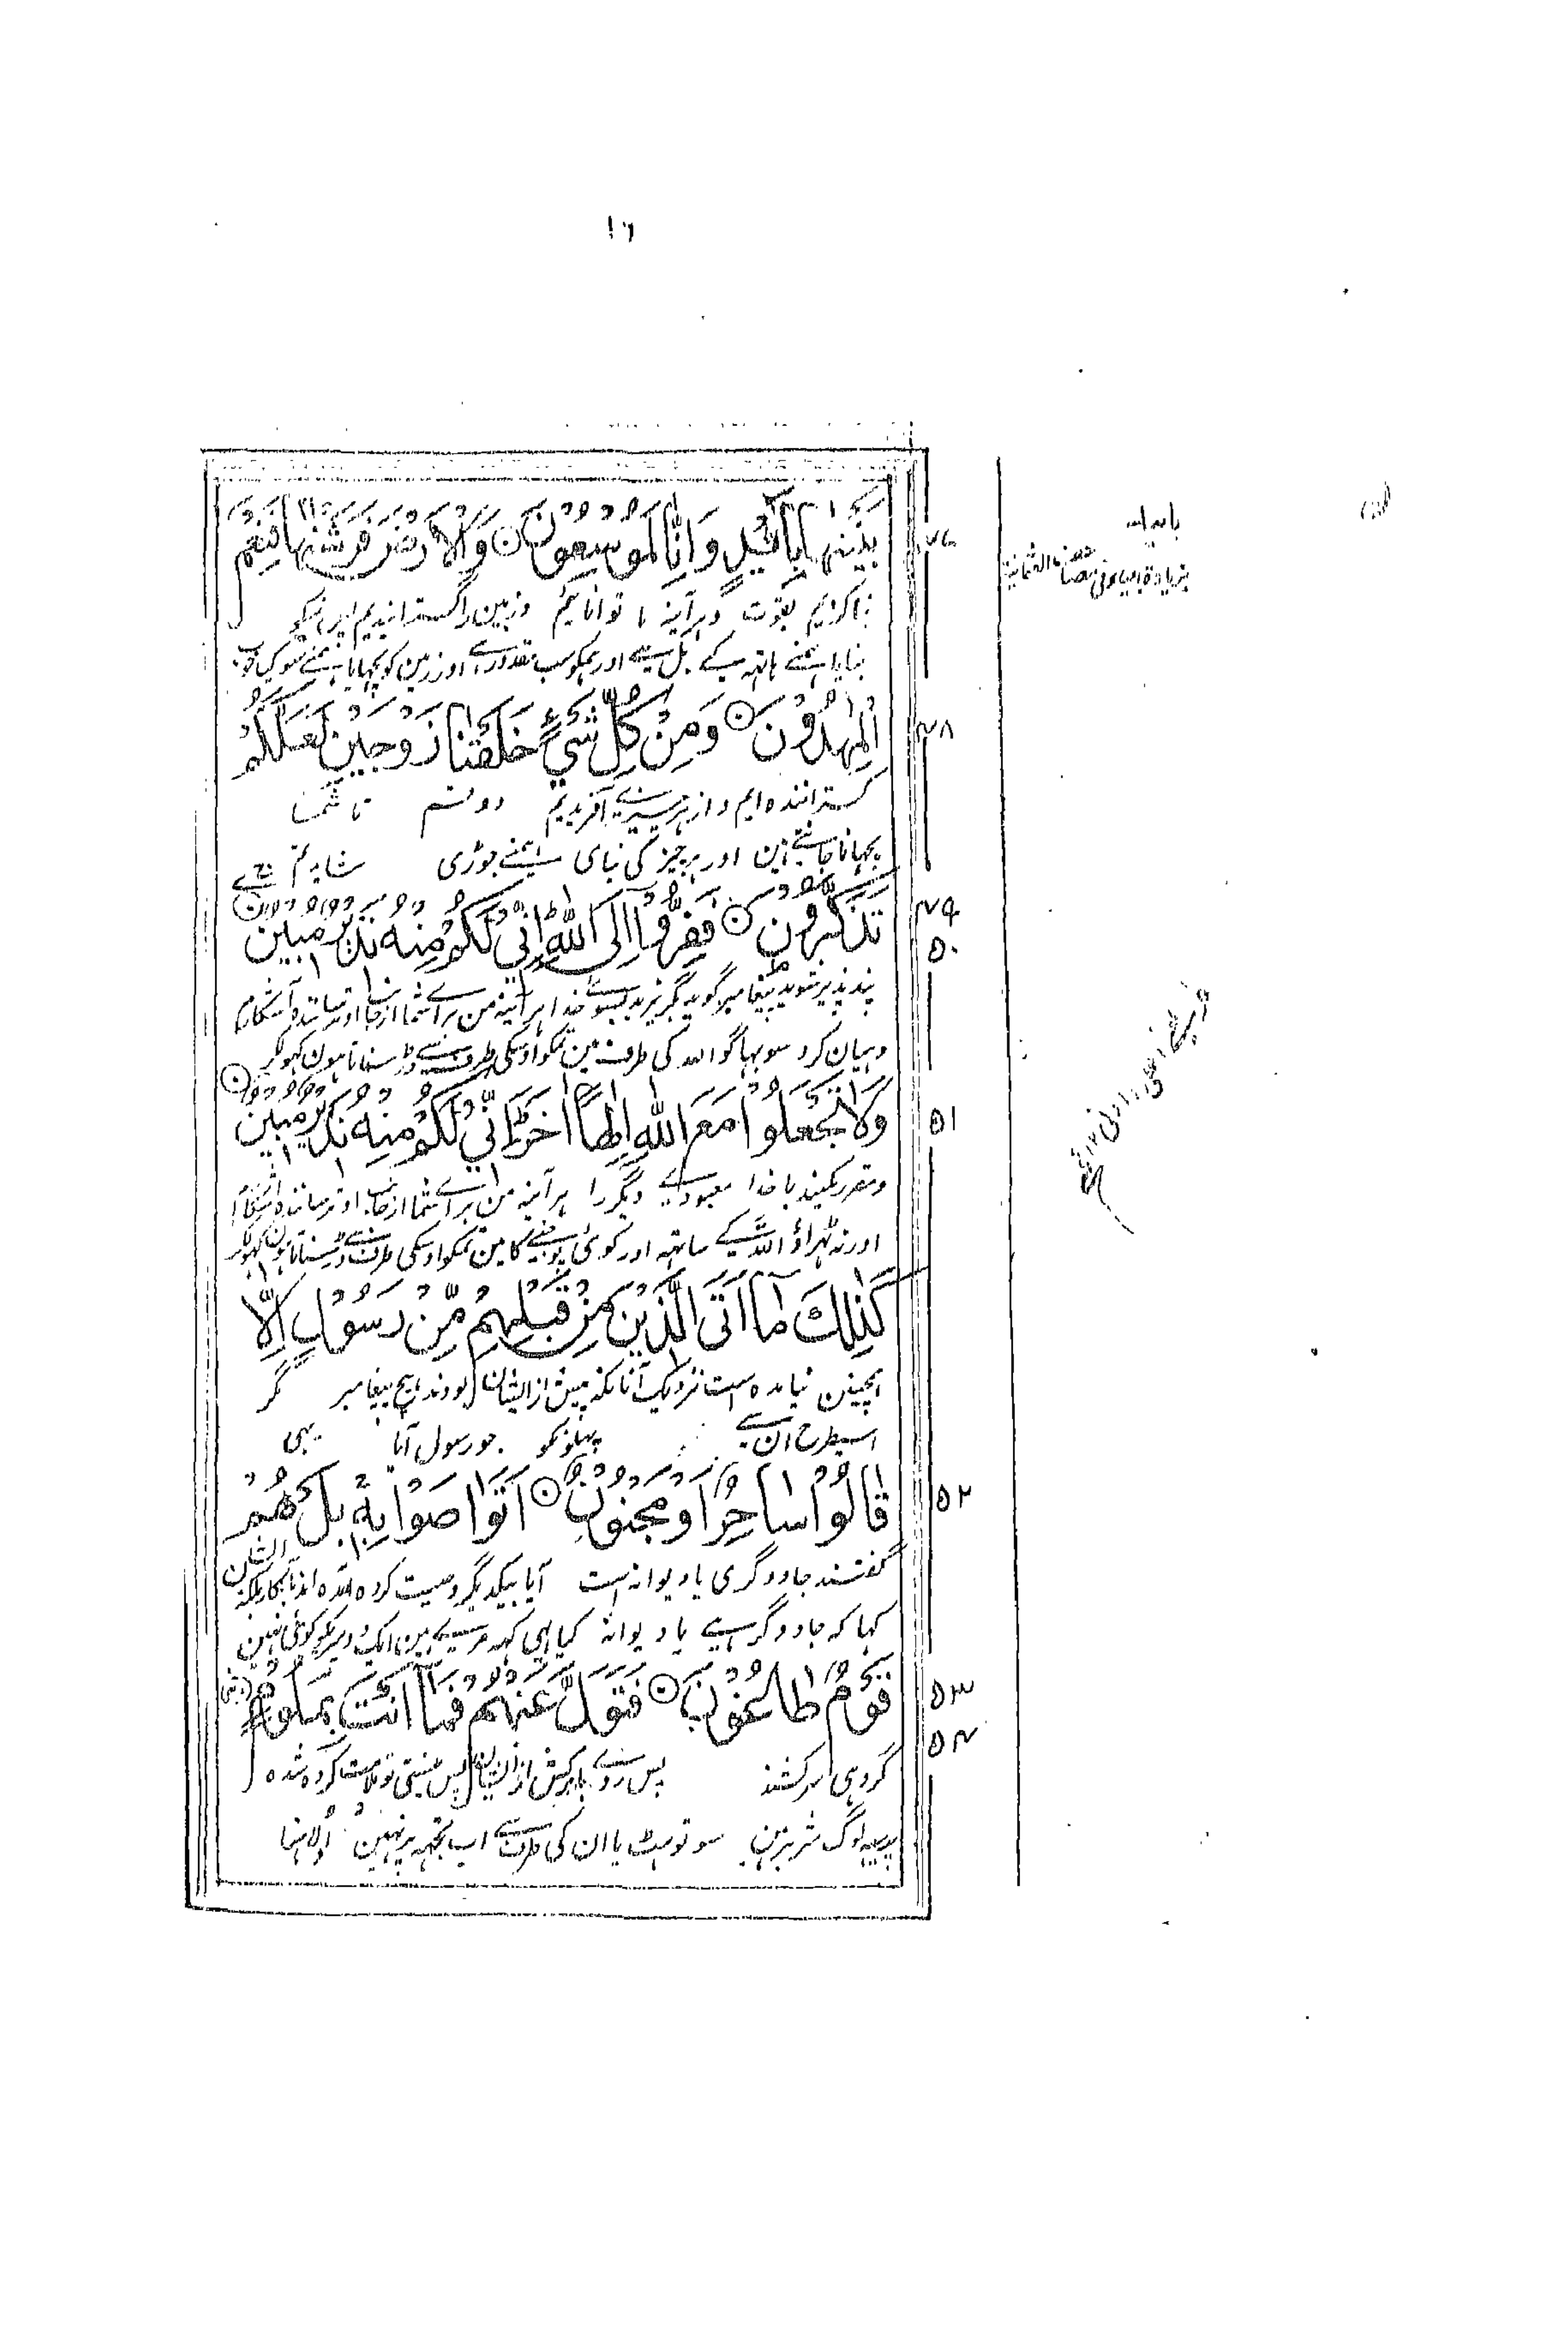 ١٦
بَنَيْنٰهَا بِاَيْىدٍ وَاِنَّا لَمُوْسِعُوْنَ ۝ وَالْاَرْضَ فَرَشْنٰهَا فَنِعْمَ
بنا کردیم بقوّت و ہر آینہ ما تواناییم و زمین را گسترانیدیم پس نیکو
بنایا ہمنے ہاتہہ کے بل سے اور ہمکو سب مقدور ہے اور زمین کو بچہایا ہمنے سو کیا خوب
الْمٰهِدُوْنَ ۝ وَمِنْ كُلِّ شَيْءٍ خَلَقْنَا زَوْجَيْنِ لَعَلَّكُمْ
۴۸
گستراننده ایم و از ہر چیزے آفریدیم دو قسم تا شما
بچہانا جانتے ہین اور ہر چیز کی بنای ہمنے جوڑی شاید تم
تَذَكَّرُوْنَ ۝ فَفِرُّوْٓا اِلَى اللّٰهِ اِنِّيْ لَكُمْ مِنْهُ نَذِيْرٌ مُّبِيْنٌ ۝
۴۹
۵۰
پند پذیر شوید پیغامبر گوید بگریزید بسوے خدا ہر آینہ من براے شما از جانب او ترساننده آشکارم
دہیان کرو سو بہاگو الله کی طرف مین تمکو اوسکی طرف سے ڈر سناتا ہون کہولکر
وَلَا تَجْعَلُوْا مَعَ اللّٰهِ اِلٰهًا اٰخَرَ اِنِّيْ لَكُمْ مِنْهُ نَذِيْرٌ مُّبِيْنٌ ۝
۵۱
و مقرر مکنید با خدا معبودے دیگر را ہر آینہ من براے شما از جانب او ترساننده آشکارا
اور نہ ٹہراؤ اللّه کے ساتہہ اور کوئی پوجنے کا مین تمکو اوسکی طرف سے ڈر سناتا ہون کہولکر
كَذٰلِكَ مَآ اَتَى الَّذِيْنَ مِنْ قَبْلِهِمْ مِّنْ رَسُوْلٍ اِلَّا
ہمچنین نیامده است نزدیک آنانکہ پیش از ایشان بودند ہیچ پیغامبر مگر
اسیطرح ان سے پہلونکو جو رسول آیا یہی
قَالُوْا سَاحِرٌ اَوْ مَجْنُوْنٌ ۝ اَتَوَاصَوْا بِهٖ بَلْ هُمْ
۵۲
گفتند جادوگری یا دیوانہ است آیا بیکدیگر وصیت کرده آمده اند بآنکار بلکہ ایشان
کہا کہ جادوگر ہے یا دیوانہ کیا یہی کہہ مرے ہین ایک دوسریکو کوئی نہین
قَوْمٌ طَاغُوْنَ ۝ فَتَوَلَّ عَنْهُمْ فَمَآ اَنْتَ بِمَلُوْمٍ
۵۳
۵۴
گروہی سرکشند پس روے بگردان از ایشان پس نیستی تو ملامت کرده شده
پر یہہ لوگ شریر ہین سو تو ہٹ یا ان کی طرف سے اب تجہہ پر نہین اُلاہنا